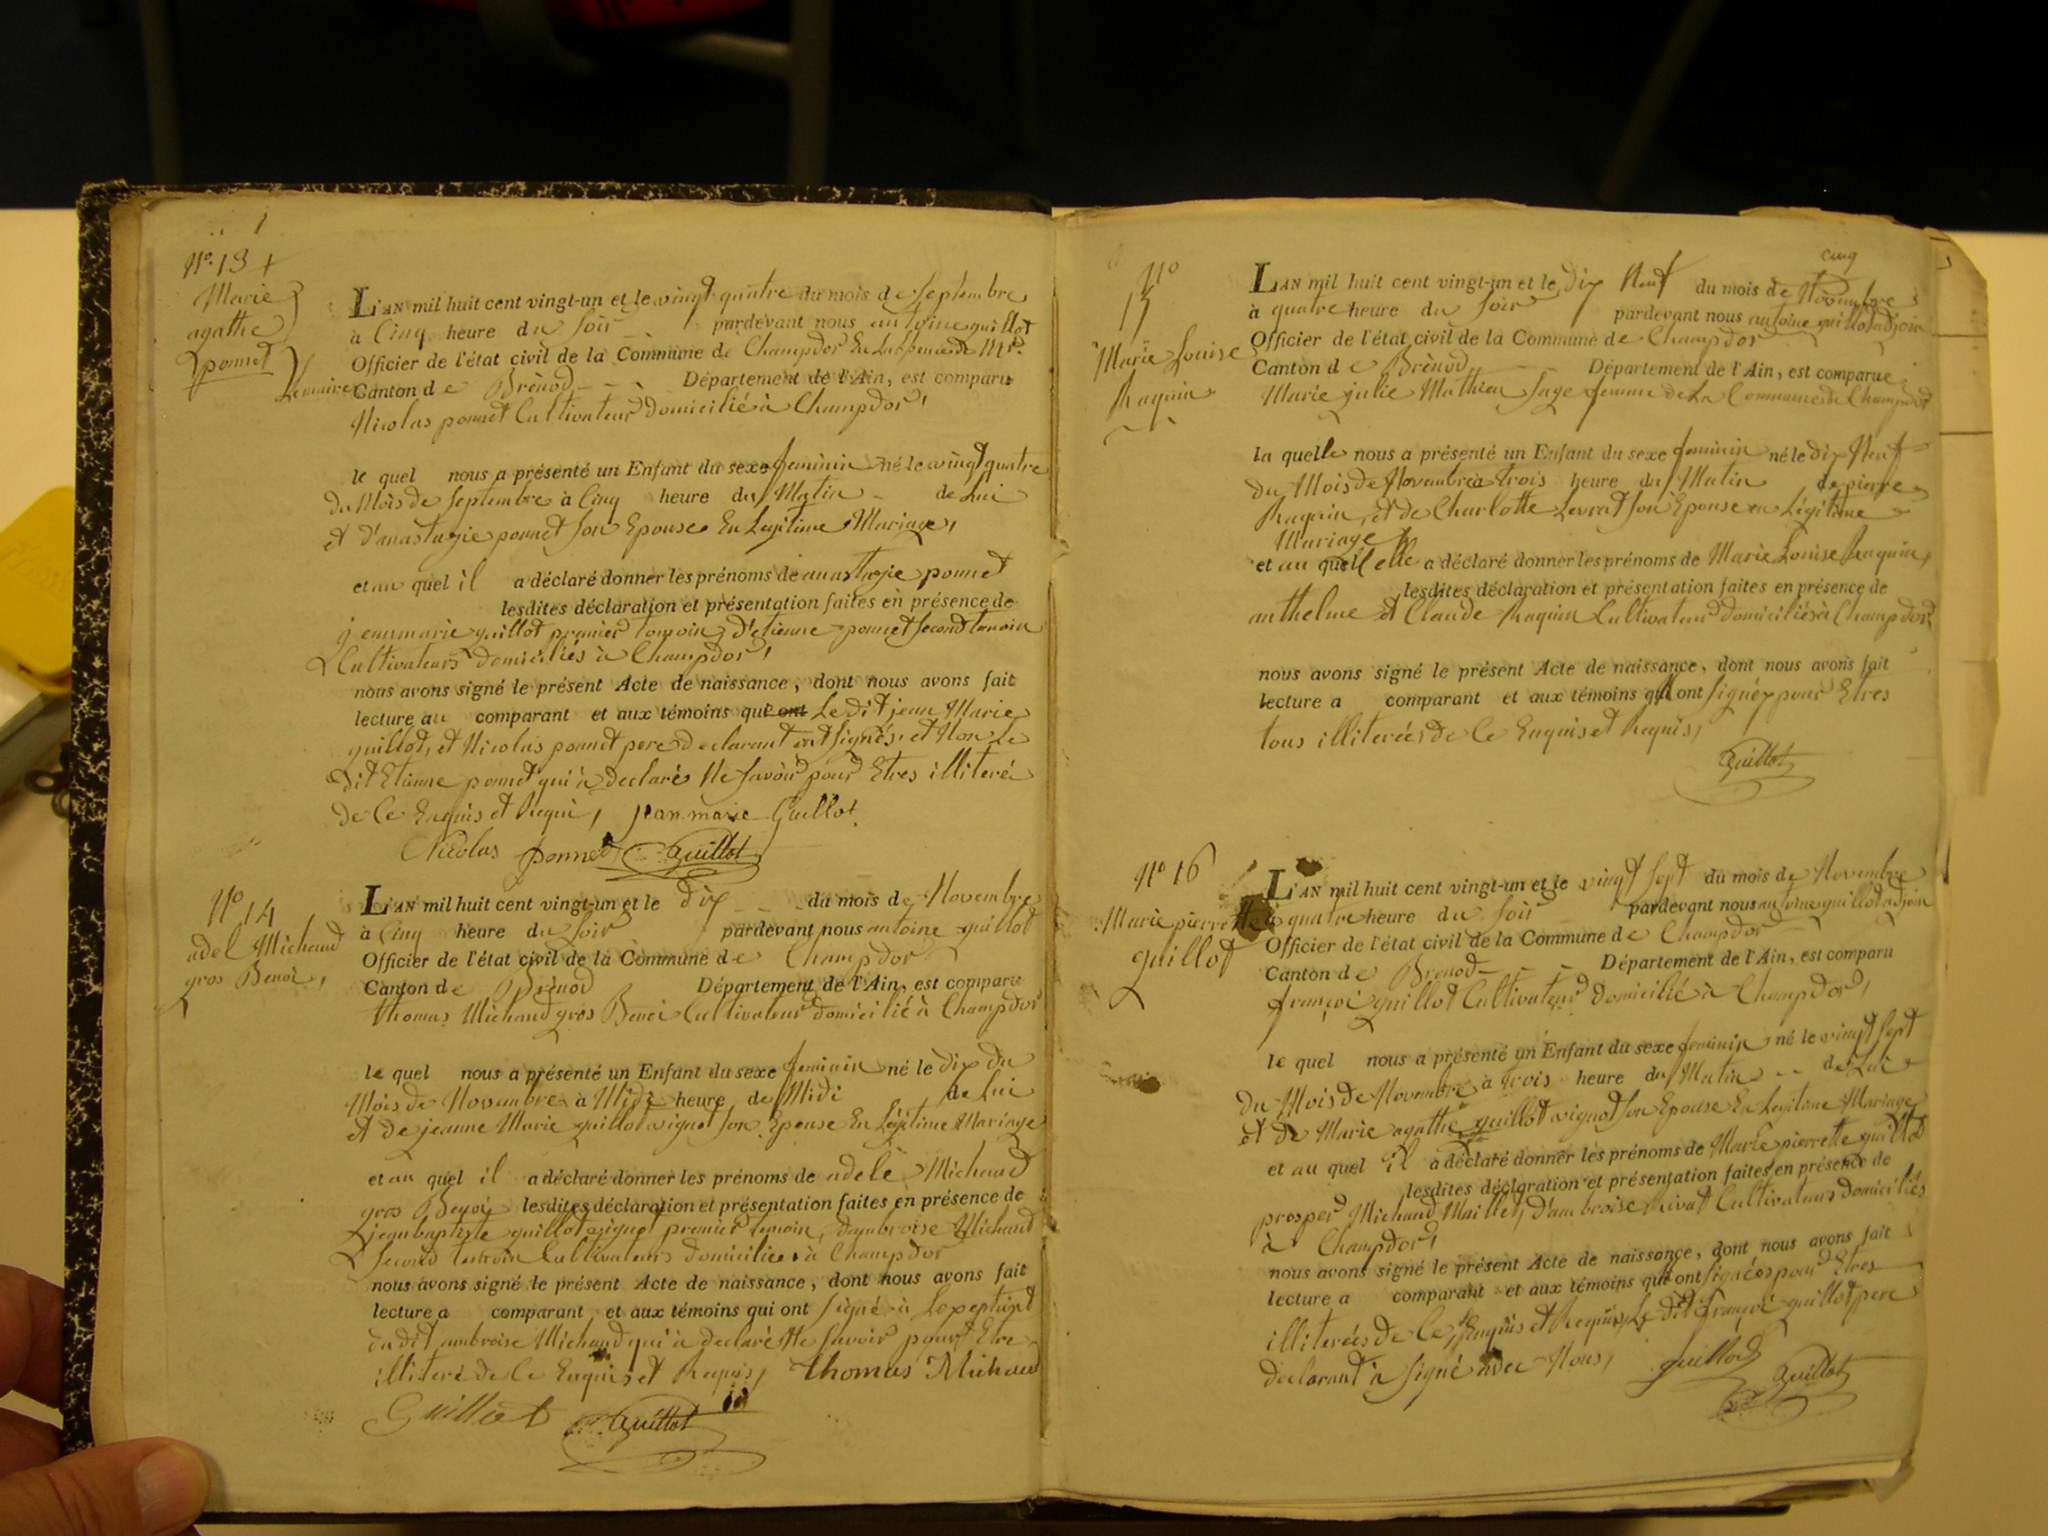 Nº 13
Marie
agathe
ponnet
L'AN mil huit cent vingt-un et le vingt quatre du mois de Septembre
à Cinq heure du Soir pardevant nous antoine guillot
Officier de l'état civil de la Commune de Champdor En Labsence de Mr.
Lemaire Canton de Brénod Département de l'Ain, est comparu
Nicolas ponnet Cultivateur domicilié à Champdor,
le quel nous a présenté un Enfant du sexe feminin né le vingt quatre
du Mois de Septembre à Cinq heure du Matin de Lui
et d'anastazie ponnet Son Epouse En Legitime Mariage,
et au quel il a déclaré donner les prénoms de anastazie ponnet
lesdites déclaration et présentation faites en présence de
jeanmarie guillot premier temoin, d'etienne ponnet second temoin
Cultivateurs domiciliés à Champdor,
nous avons signé le présent Acte de naissance, dont nous avons fait
lecture au comparant et aux témoins qui ont Le dit jean Marie
guillot, et Nicolas ponnet pere declarant ont signés, et Non Le
dit Etienne ponnet qui à declaré Ne Savoir pour Etres illiteré
de Ce Enquis et Requi, jean marie Guillot
Nicolas ponnet Guillot
Nº 14
adel Michaud
gros Benoi,
L'AN mil huit cent vingt-un et le dix du mois de Novembre
à Cinq heure du Soir pardevant nous antoine guillot
Officier de l'état civil de la Commune de Champdor
Canton de Brénod Département de l'Ain, est comparu
thomas Michaud gros Benoi Cultivateur domicilié à Champdor
le quel nous a présenté un Enfant du sexe feminin né le dix du
Mois de Novembre à Midi heure de Midi de Lui
et de jeanne Marie guillot vignot Son Epouse En Légitime Mariage
et au quel il a déclaré donner les prénoms de adele Michaud
gros Benoi lesdites déclaration et présentation faites en présence de
jeanbaptiste guillot vignot premier temoin, d'ambroise Michaud
second temoin Cultivateurs domiciliés à Champdor
nous avons signé le présent Acte de naissance, dont nous avons fait
lecture a comparant et aux témoins qui ont signé à Lexeption
du dit ambroise Michaud qui à declaré Ne Savoir pour Etre
illiteré de Ce Enquis et Requis, thomas Michaud
Guillot Guillot
cinq
Nº
15
Marie Louise
Raquin
L'AN mil huit cent vingt-un et le dix Neuf du mois de Novembre
à quatre heure du Soir pardevant nous antoine guillot adjoin
Officier de l'état civil de la Commune de Champdor
Canton de Brénod Département de l'Ain, est comparue
Marie julie Mathieu Sage femme de La Commune de Champdor
la quelle nous a présenté un Enfant du sexe feminin né le dix Neuf
du Mois de Novembre à trois heure du Matin de pierre
Raquin, et de Charlotte Levrat Son Epouse en Légitime
Mariage
et au quel elle a déclaré donner les prénoms de Marie Louise Raquin,
lesdites déclaration et présentation faites en présence de
anthelme et Claude Raquin Cultivateurs domiciliés à Champdor
nous avons signé le présent Acte de naissance, dont nous avons fait
lecture a comparant et aux témoins qui ont signé, pour Etres
tous illiterées de Ce Enquis et Requis,
Guillot
Nº 16
Marie pierrette
guillot
L'AN mil huit cent vingt-un et le vingt Sept du mois de Novembre
à quatre heure du Soir pardevant nous antoine guillot adjoin
Officier de l'état civil de la Commune de Champdor
Canton de Brénod Département de l'Ain, est comparu
françoi guillot Cultivateur domicilié à Champdor,
le quel nous a présenté un Enfant du sexe feminin né le vingt Sept
du Mois de Novembre à trois heure du Matin de Lui
et de Marie agathe guillot vignot Son Epouse En Legitime Mariage
et au quel il a déclaré donner les prénoms de Marie pierrette guillot
lesdites déclaration et présentation faites en présence de
prosper Michaud Maillet, d'ambroise Rivat Cultivateurs domiciliés
à Champdor,
nous avons signé le présent Acte de naissance, dont nous avons fait
lecture a comparant et aux témoins qui ont signées pour Etres
illiterées de Ce, Enquis et Requis, Le dit françoi guillot pere
declarant à signé avec Nous, guillot
Guillot